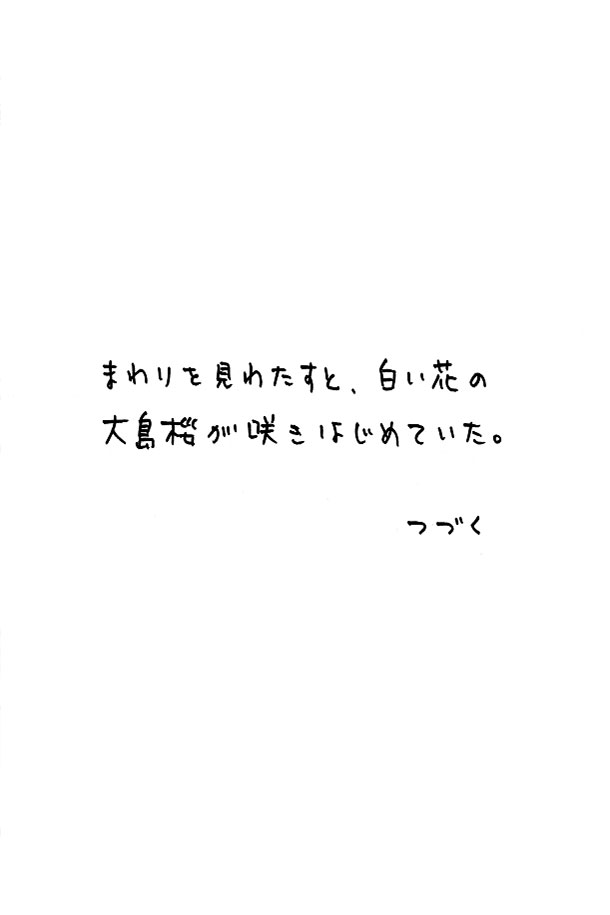 まわりを見わたすと、白い花の
大島桜が咲きはじめていた。
つづく